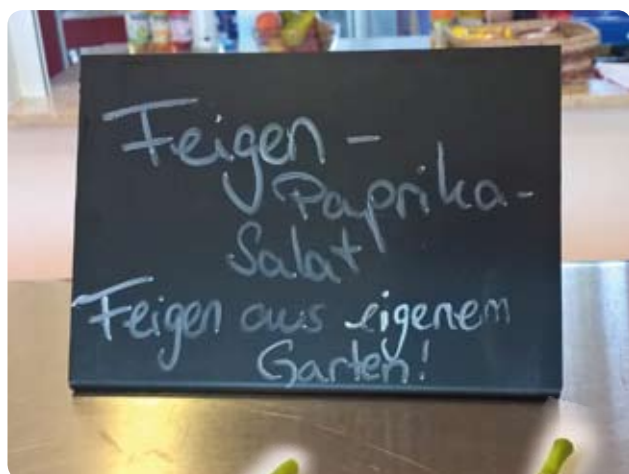 Feigen -
Paprika-
Salat
Feigen aus eigenem
Garten!